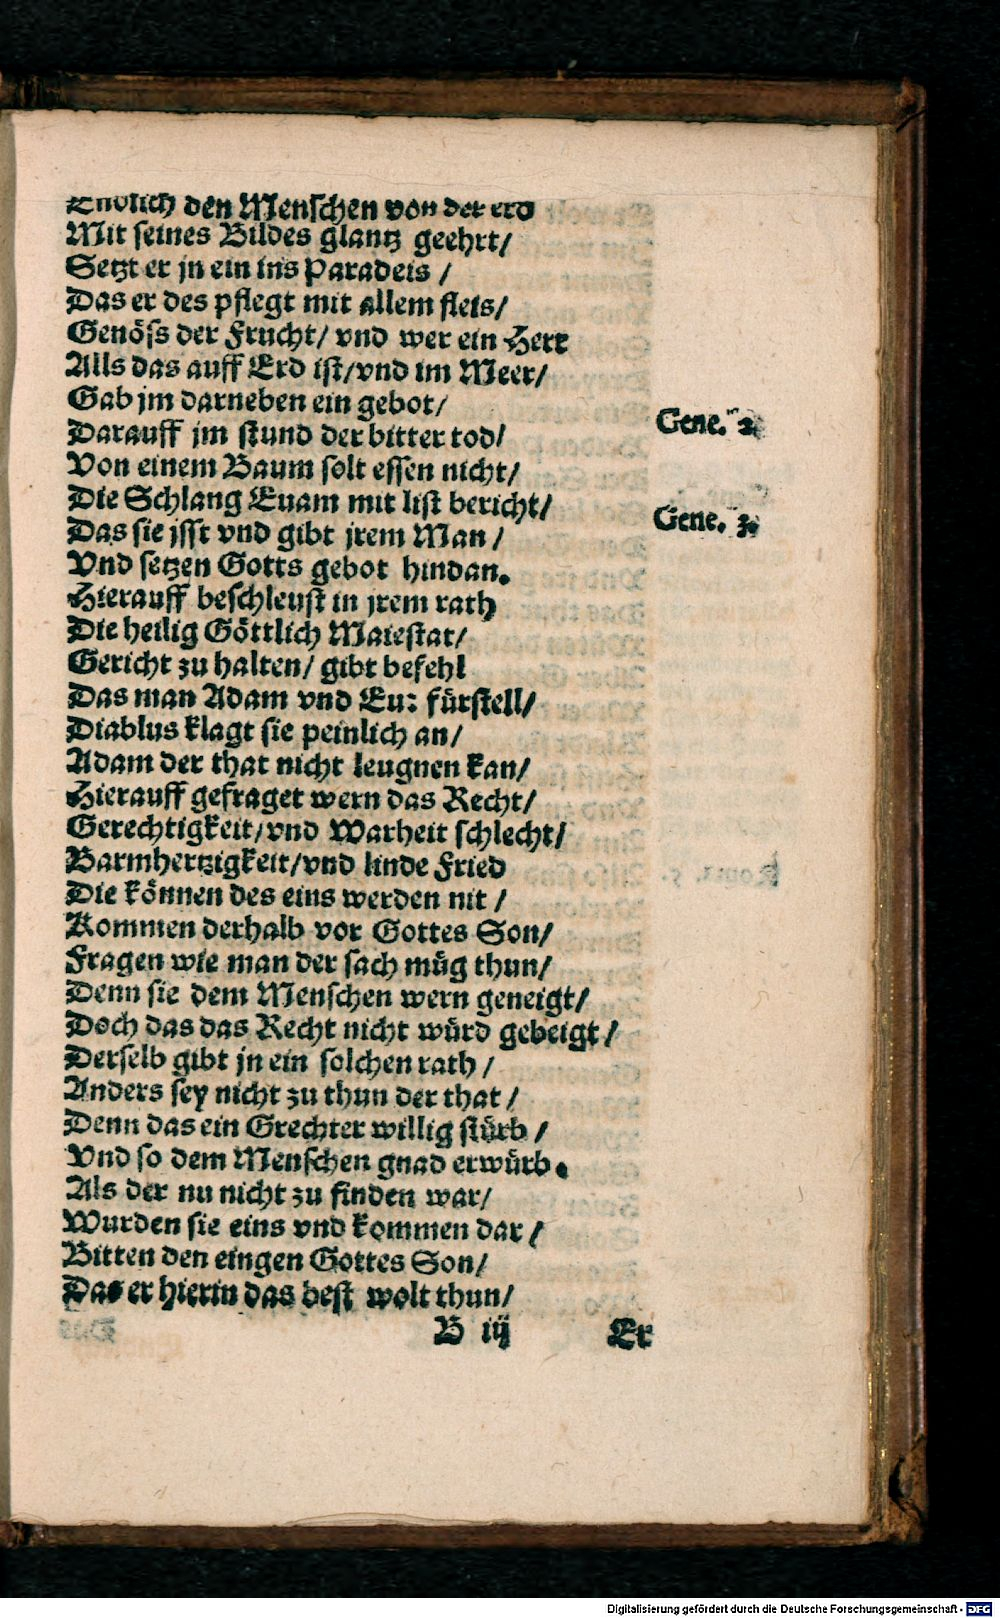 Endlich den Menschen von der erd
Mit seines Bildes glantz geehrt/
Setzt er jn ein ins Paradeis /
Das er des pflegt mit allem fleis/
Genöss der Frucht/ vnd wer ein Herr
Alls das auff Erd ist/vnd im Meer/
Gab jm darneben ein gebot/
Darauff jm stund der bitter tod/
Gene. 2.
Von einem Baum solt essen nicht/
Die Schlang Euam mit list bericht/
Das sie jsst vnd gibt jrem Man /
Gene. 3.
Vnd setzen Gotts gebot hindan.
Hierauff beschleust in jrem rath
Die heilig Göttlich Maiestat/
Gericht zu halten/ gibt befehl
Das man Adam vnd Eu: fürstell/
Diablus klagt sie peinlich an/
Adam der that nicht leugnen kan/
Hierauff gefraget wern das Recht/
Gerechtigkeit/vnd Warheit schlecht/
Barmhertzigkeit/vnd linde Fried
Die können des eins werden nit /
Kommen derhalb vor Gottes Son/
Fragen wie man der sach müg thun/
Denn sie dem Menschen wern geneigt/
Doch das das Recht nicht würd gebeigt/
Derselb gibt jn ein solchen rath /
Anders sey nicht zu thun der that /
Denn das ein Grechter willig stürb /
Vnd so dem Menschen gnad erwürb.
Als der nu nicht zu finden war/
Wurden sie eins vnd kommen dar /
Bitten den eingen Gottes Son/
Das er hierin das best wolt thun/
B iij
Er
Digitalisierung gefördert durch die Deutsche Forschungsgemeinschaft - DFG